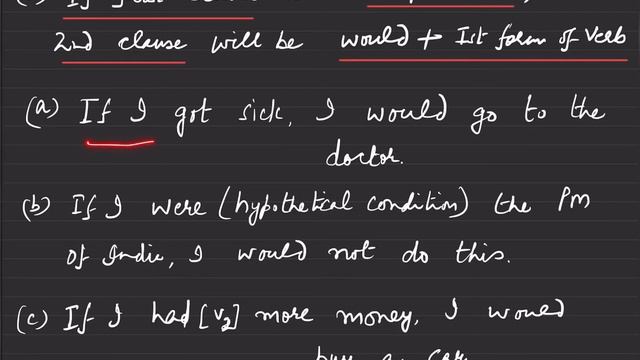 If
2nd clause will be would + Ist form of Verb
(a) If I got sick, I would go to the
doctor.
(b) If I were (hypothetical condition) the PM
of India, I would not do this.
(c) If I had [V2] more money, I would
buy a car